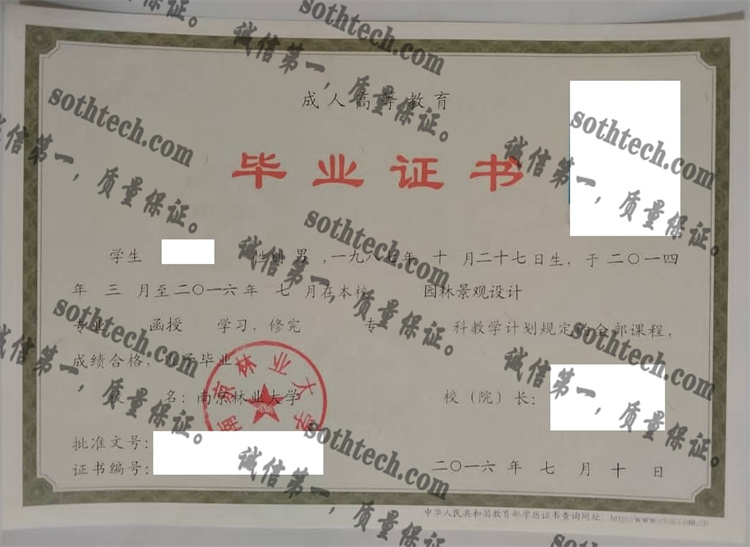 成人高等教育
毕业证书
学生 性别 男 ,一九八七年 十 月二十七日生, 于二〇一四
年 三 月至二〇一六年 七 月在本校 园林景观设计
专业 函授 学习, 修完 专 科教学计划规定的全部课程,
成绩合格, 准予毕业。
校 名: 南京林业大学
校(院)长:
批准文号:
证书编号:
二〇一六 年 七 月 十 日
中华人民共和国教育部学历证书查询网址:
南京林业大学
sothtech.com
诚信第一,质量保证。
sothtech.com
诚信第一,质量保证。
sothtech.com
诚信第一,质量保证。
sothtech.com
诚信第一,质量保证。
sothtech.com
诚信第一,质量保证。
sothtech.com
诚信第一,质量保证。
sothtech.com
诚信第一,质量保证。
sothtech.com
诚信第一,质量保证。
sothtech.com